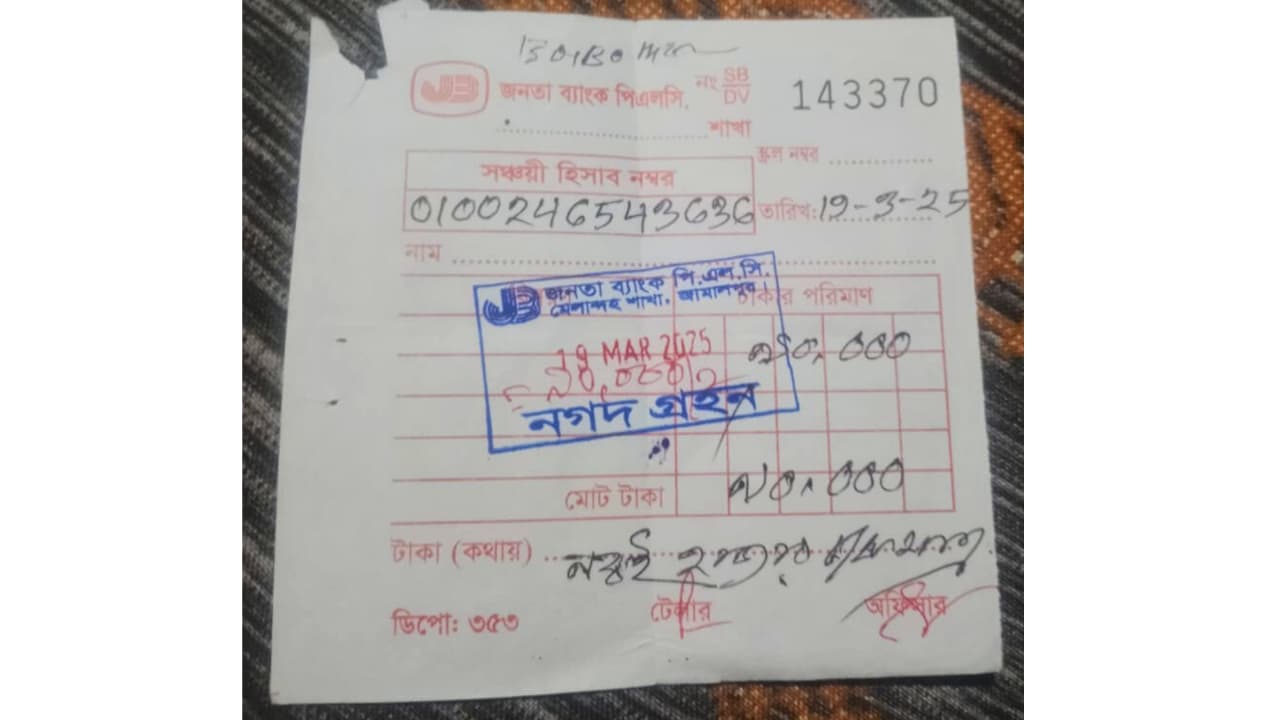 JB জনতা ব্যাংক পিএলসি. নং SB/DV 143370
শাখা
স্ক্রল নম্বর
সঞ্চয়ী হিসাব নম্বর
0100246543636 তারিখ: 19-3-25
নাম
JB জনতা ব্যাংক পি.এল.সি.
মেলান্দহ শাখা, জামালপুর।
টাকার পরিমাণ
19 MAR 2025
৯০,০০০
নগদ গ্রহন
মোট টাকা ৯০,০০০
টাকা (কথায়) নব্বই হাজার
ডিপো: ৩৫৩ টেলার অফিসার